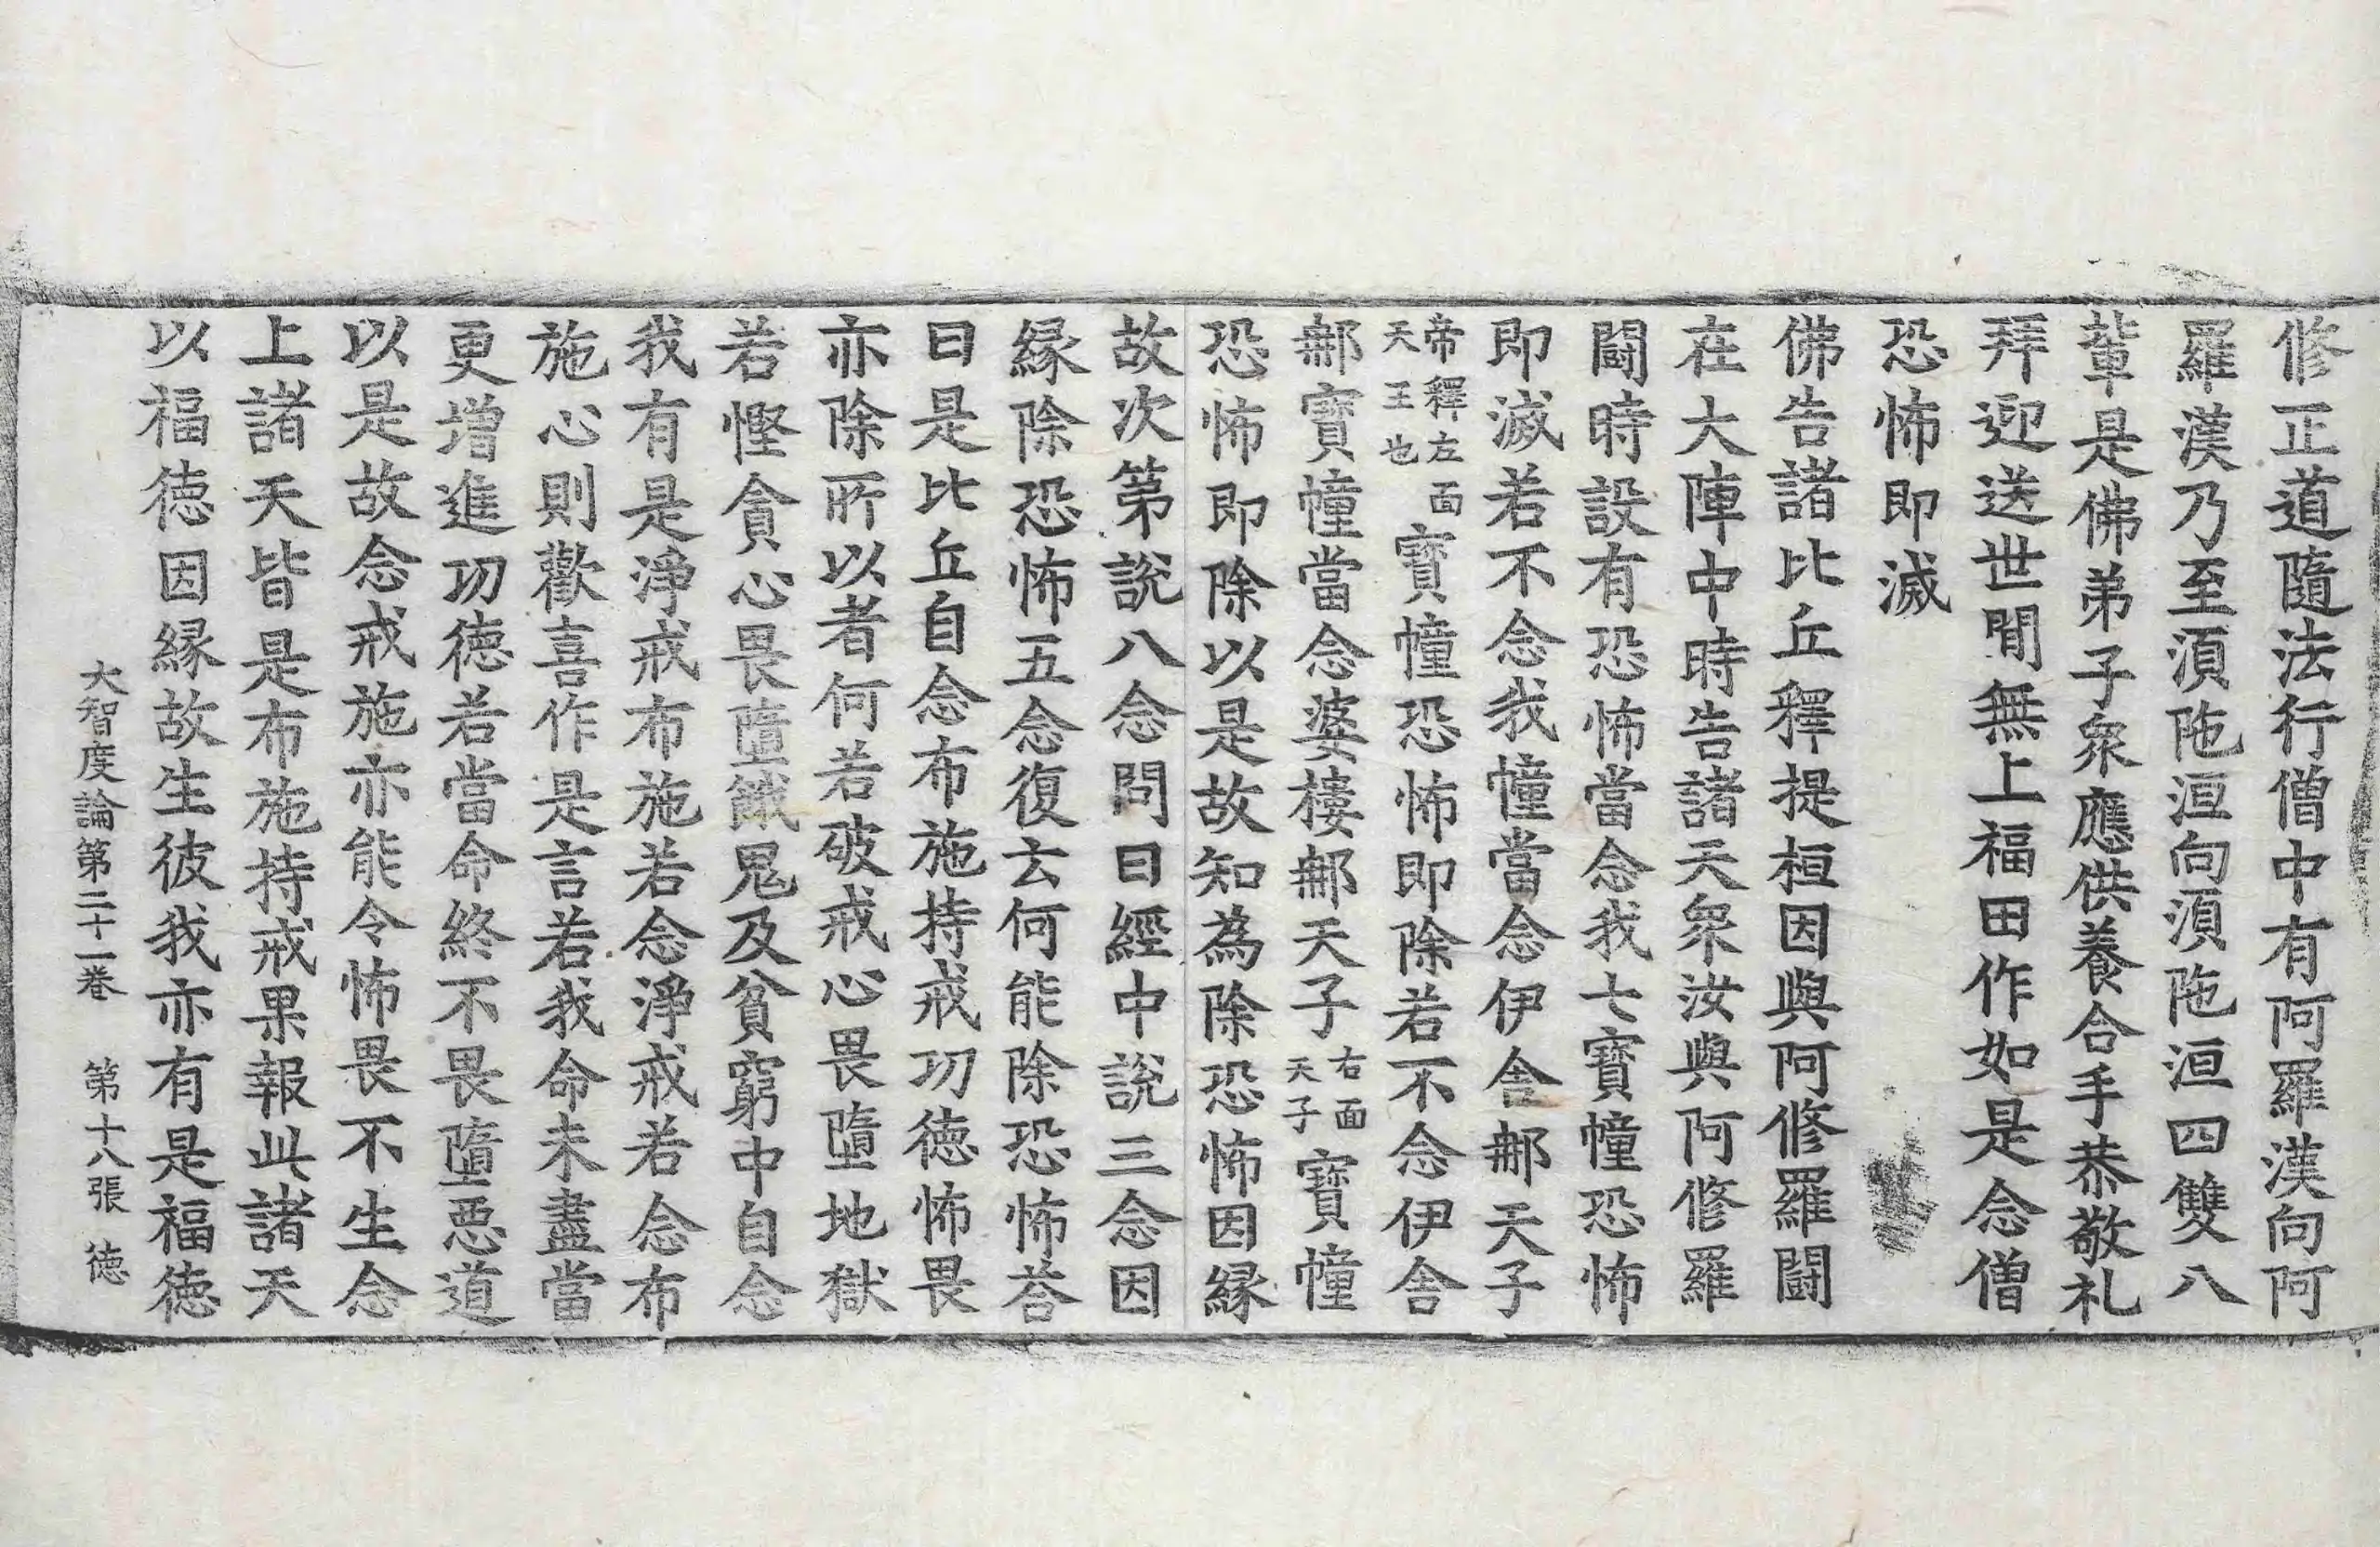 修正道隨法行僧中有阿羅漢向阿
羅漢乃至湏陁洹向湏陁洹四雙八
輩是佛弟子衆應供養合手恭敬礼
拜迎送世閒無上福田作如是念僧
恐怖即滅
佛告諸比丘釋提桓因與阿修羅鬪
在大陣中時告諸天衆汝與阿修羅
鬪時設有恐怖當念我七寶幢恐怖
即滅若不念我幢當念伊舍𨚗天子
帝釋左面天王也寶幢恐怖即除若不念伊舍
𨚗寶幢當念婆樓𨚗天子右面天子寶幢
恐怖即除以是故知為除恐怖因縁
故次第說八念問曰經中說三念因
縁除恐怖五念復云何能除恐怖荅
曰是比丘自念布施持戒功徳怖畏
亦除所以者何若破戒心畏墮地獄
若慳貪心畏墮餓鬼及貧窮中自念
我有是淨戒布施若念淨戒若念布
施心則歡喜作是言若我命未盡當
更增進功徳若當命終不畏墮惡道
以是故念戒施亦能令怖畏不生念
上諸天皆是布施持戒果報此諸天
以福徳因縁故生彼我亦有是福徳
大智度論第二十一卷 第十八張 徳